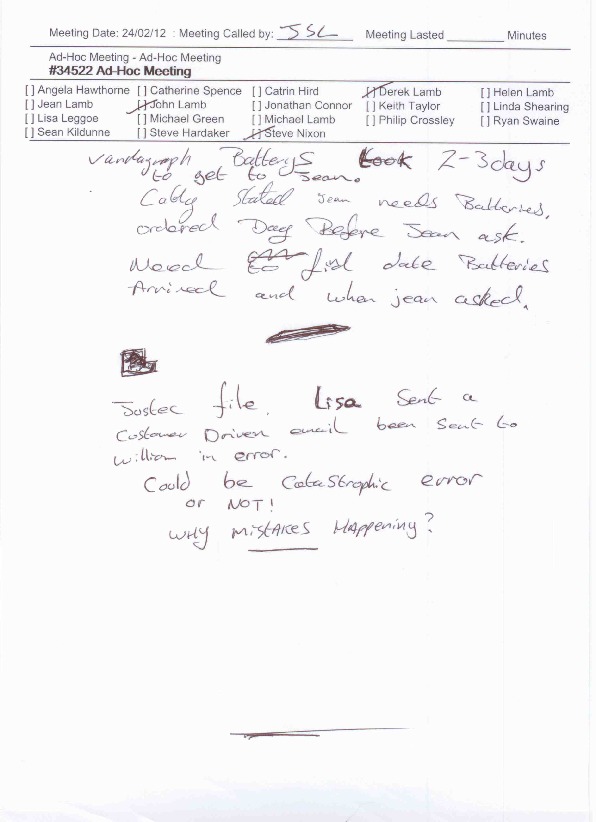 Meeting Date: 24/02/12 : Meeting Called by: JSL Meeting Lasted ________ Minutes
Ad-Hoc Meeting - Ad-Hoc Meeting
#34522 Ad-Hoc Meeting
[ ] Angela Hawthorne [ ] Catherine Spence [ ] Catrin Hird [/] Derek Lamb [ ] Helen Lamb
[ ] Jean Lamb [/] John Lamb [ ] Jonathan Connor [ ] Keith Taylor [ ] Linda Shearing
[ ] Lisa Leggoe [ ] Michael Green [ ] Michael Lamb [ ] Philip Crossley [ ] Ryan Swaine
[ ] Sean Kildunne [ ] Steve Hardaker [/] Steve Nixon
Vandagraph Batterys took 2-3 days
to get to Jean.
Cathy stated Jean needs Batteries.
ordered Day Before Jean ask.
Need to find date Batteries
Arrived and when jean asked.
Justec file. Lisa Sent a
Customer Driven email been sent to
William in error.
Could be Catastrophic error
or NOT!
WHY MISTAKES HAPPENING?